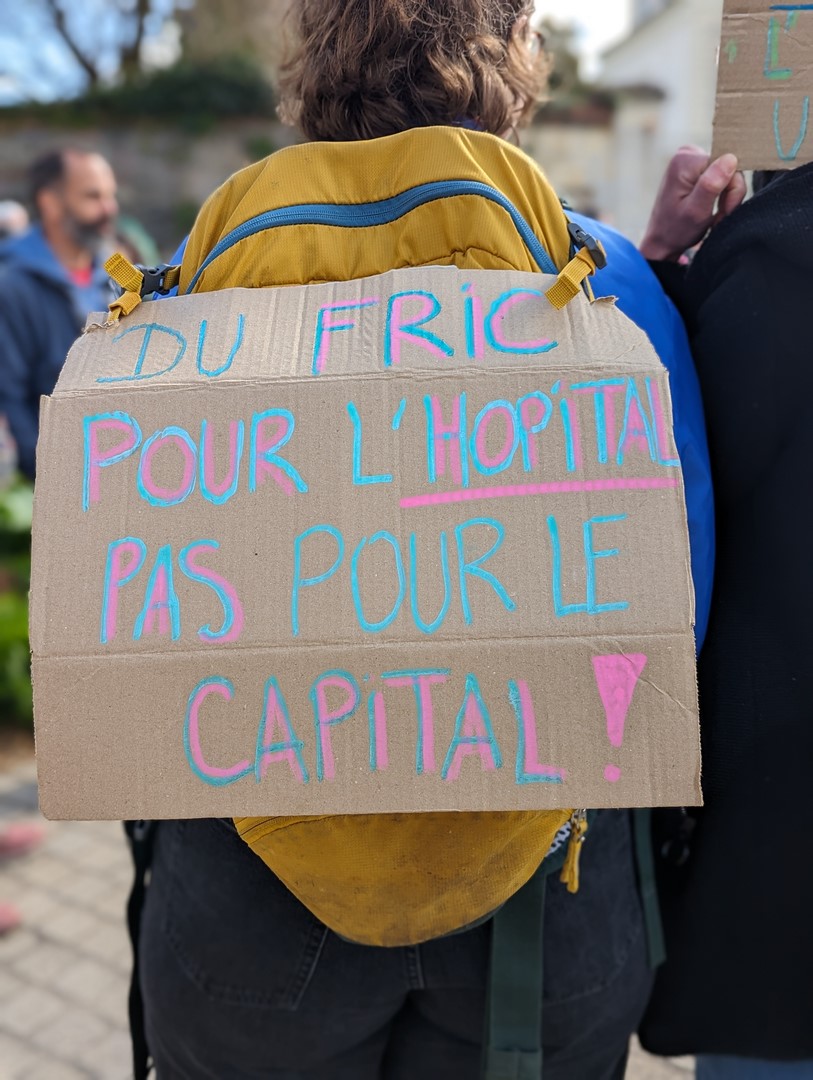 DU FRiC
POUR L'HOPiTAL
PAS POUR LE
CAPiTAL !
L'
U